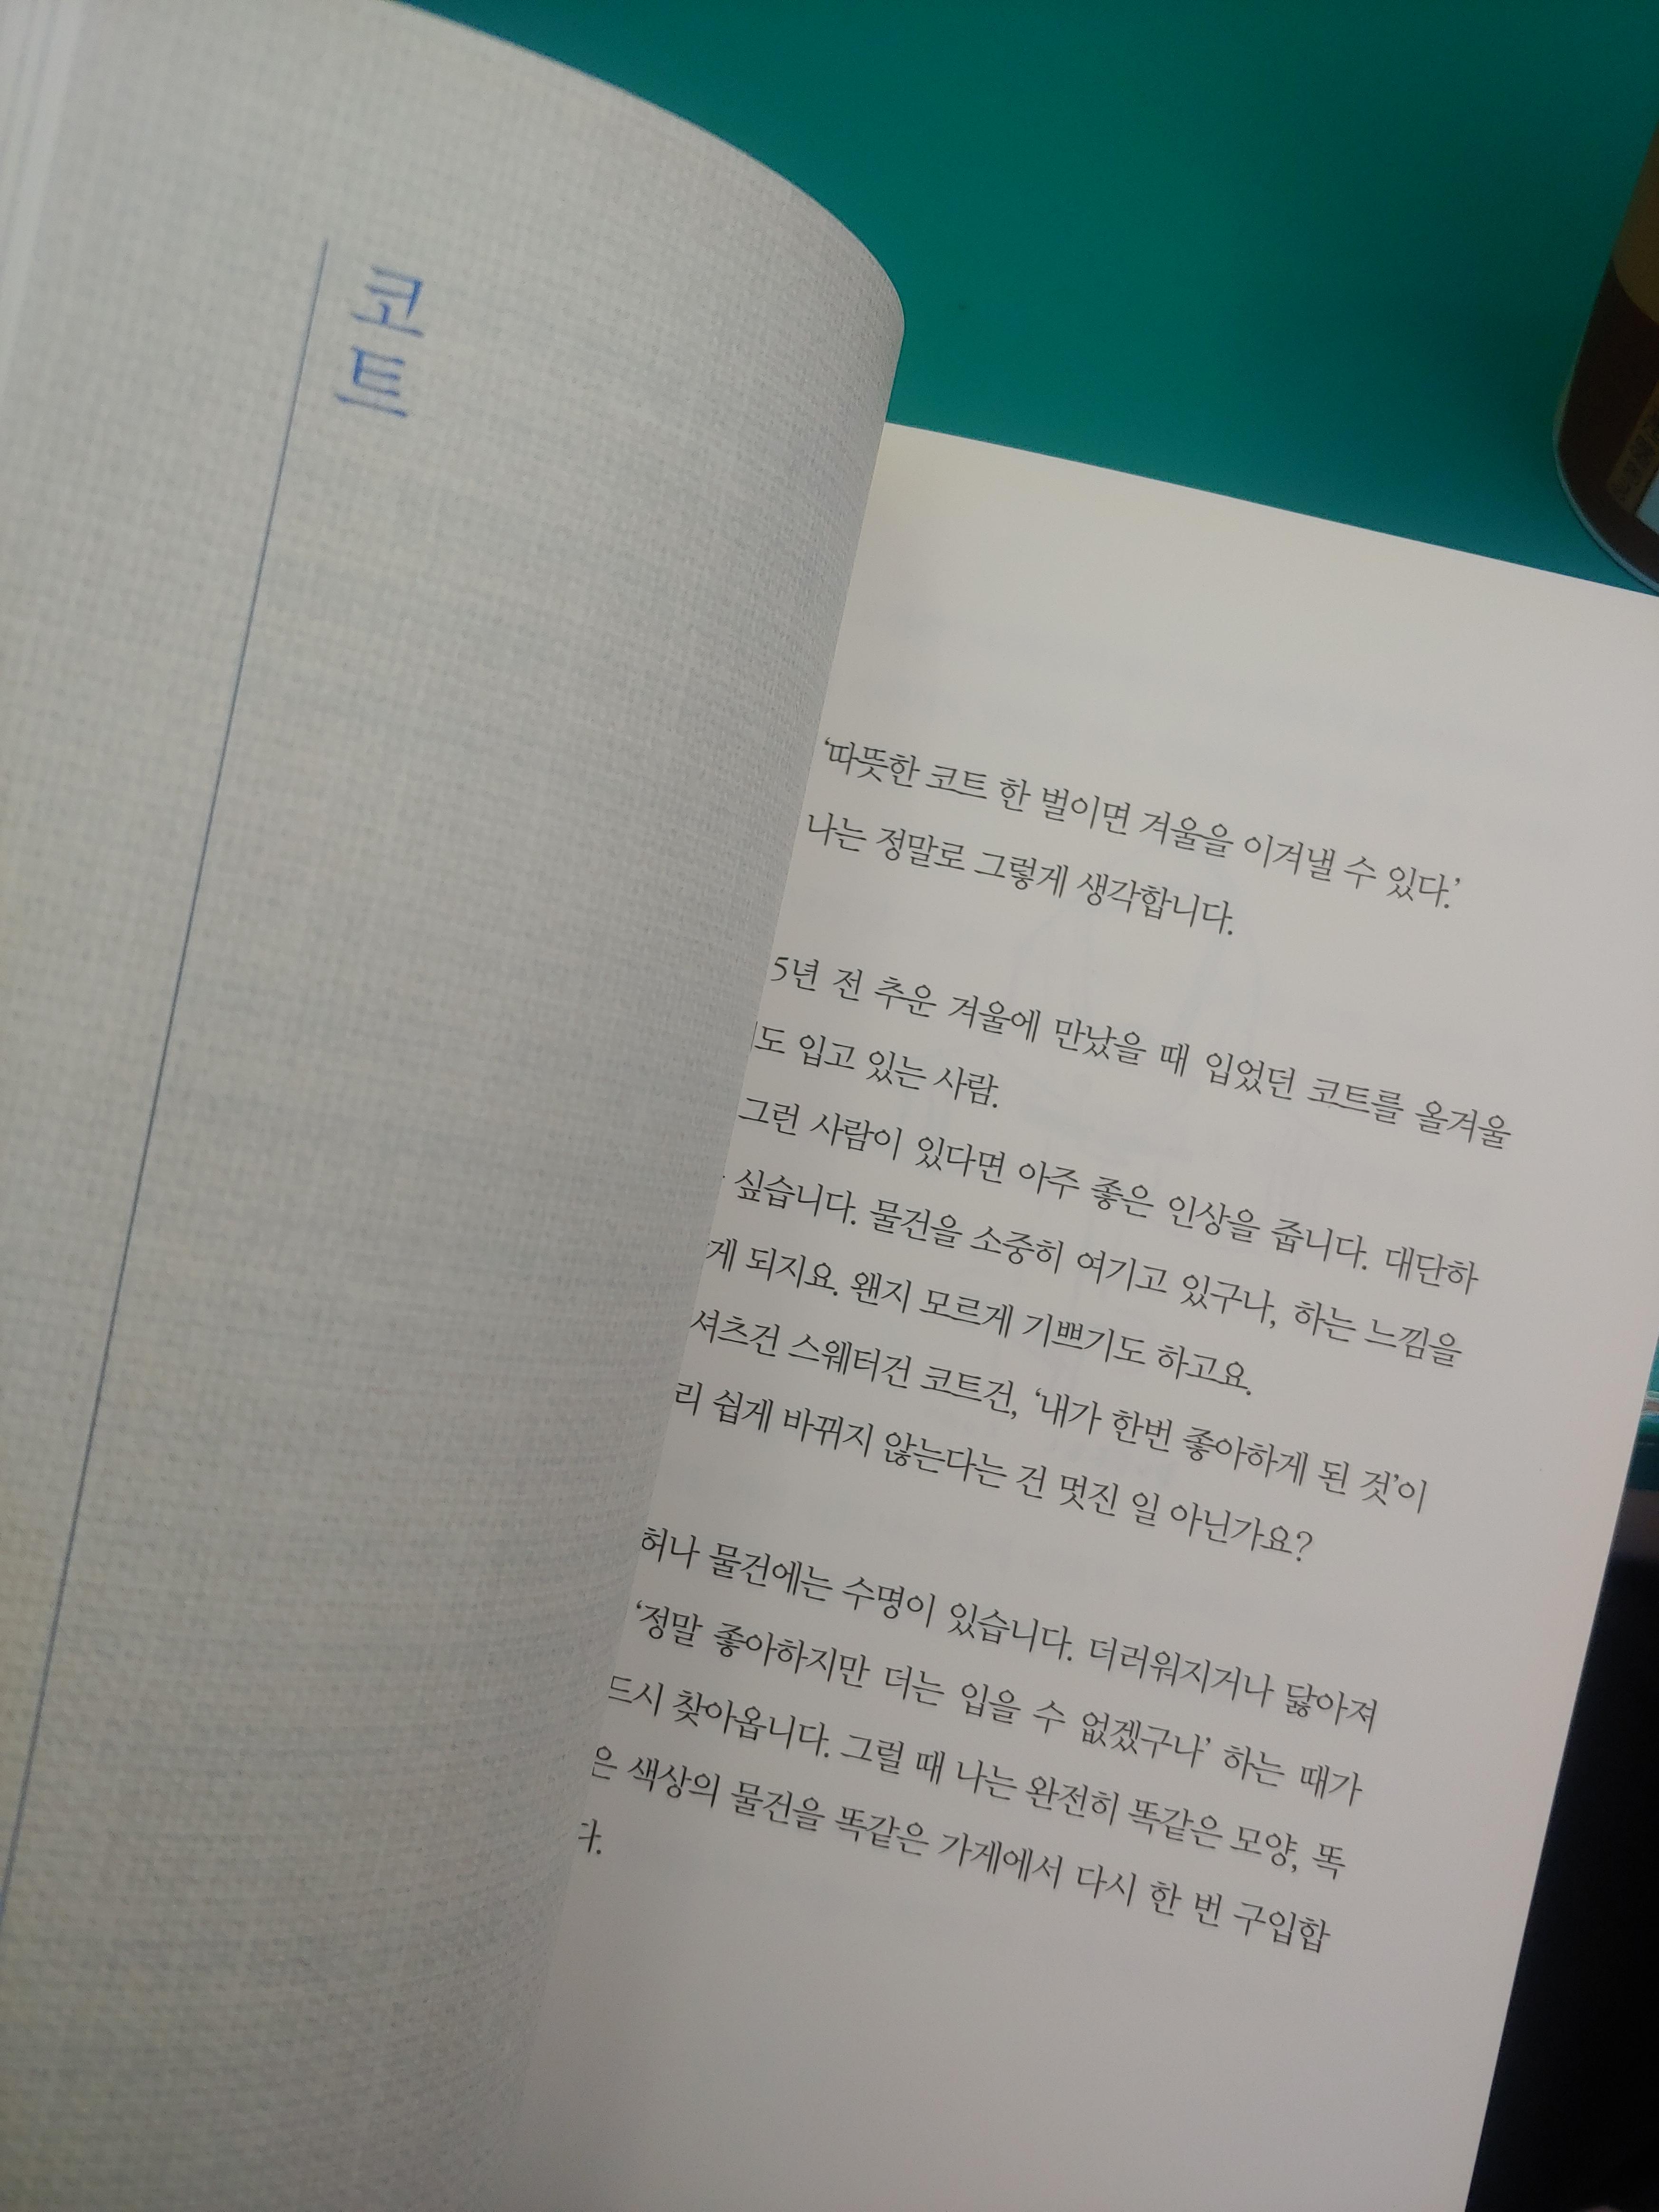 코트
‘따뜻한 코트 한 벌이면 겨울을 이겨낼 수 있다.’
나는 정말로 그렇게 생각합니다.
5년 전 추운 겨울에 만났을 때 입었던 코트를 올겨울
도 입고 있는 사람.
그런 사람이 있다면 아주 좋은 인상을 줍니다. 대단하
싶습니다. 물건을 소중히 여기고 있구나, 하는 느낌을
게 되지요. 왠지 모르게 기쁘기도 하고요.
셔츠건 스웨터건 코트건, ‘내가 한번 좋아하게 된 것’이
리 쉽게 바뀌지 않는다는 건 멋진 일 아닌가요?
허나 물건에는 수명이 있습니다. 더러워지거나 닳아져
‘정말 좋아하지만 더는 입을 수 없겠구나’ 하는 때가
드시 찾아옵니다. 그럴 때 나는 완전히 똑같은 모양, 똑
은 색상의 물건을 똑같은 가게에서 다시 한 번 구입합
다.